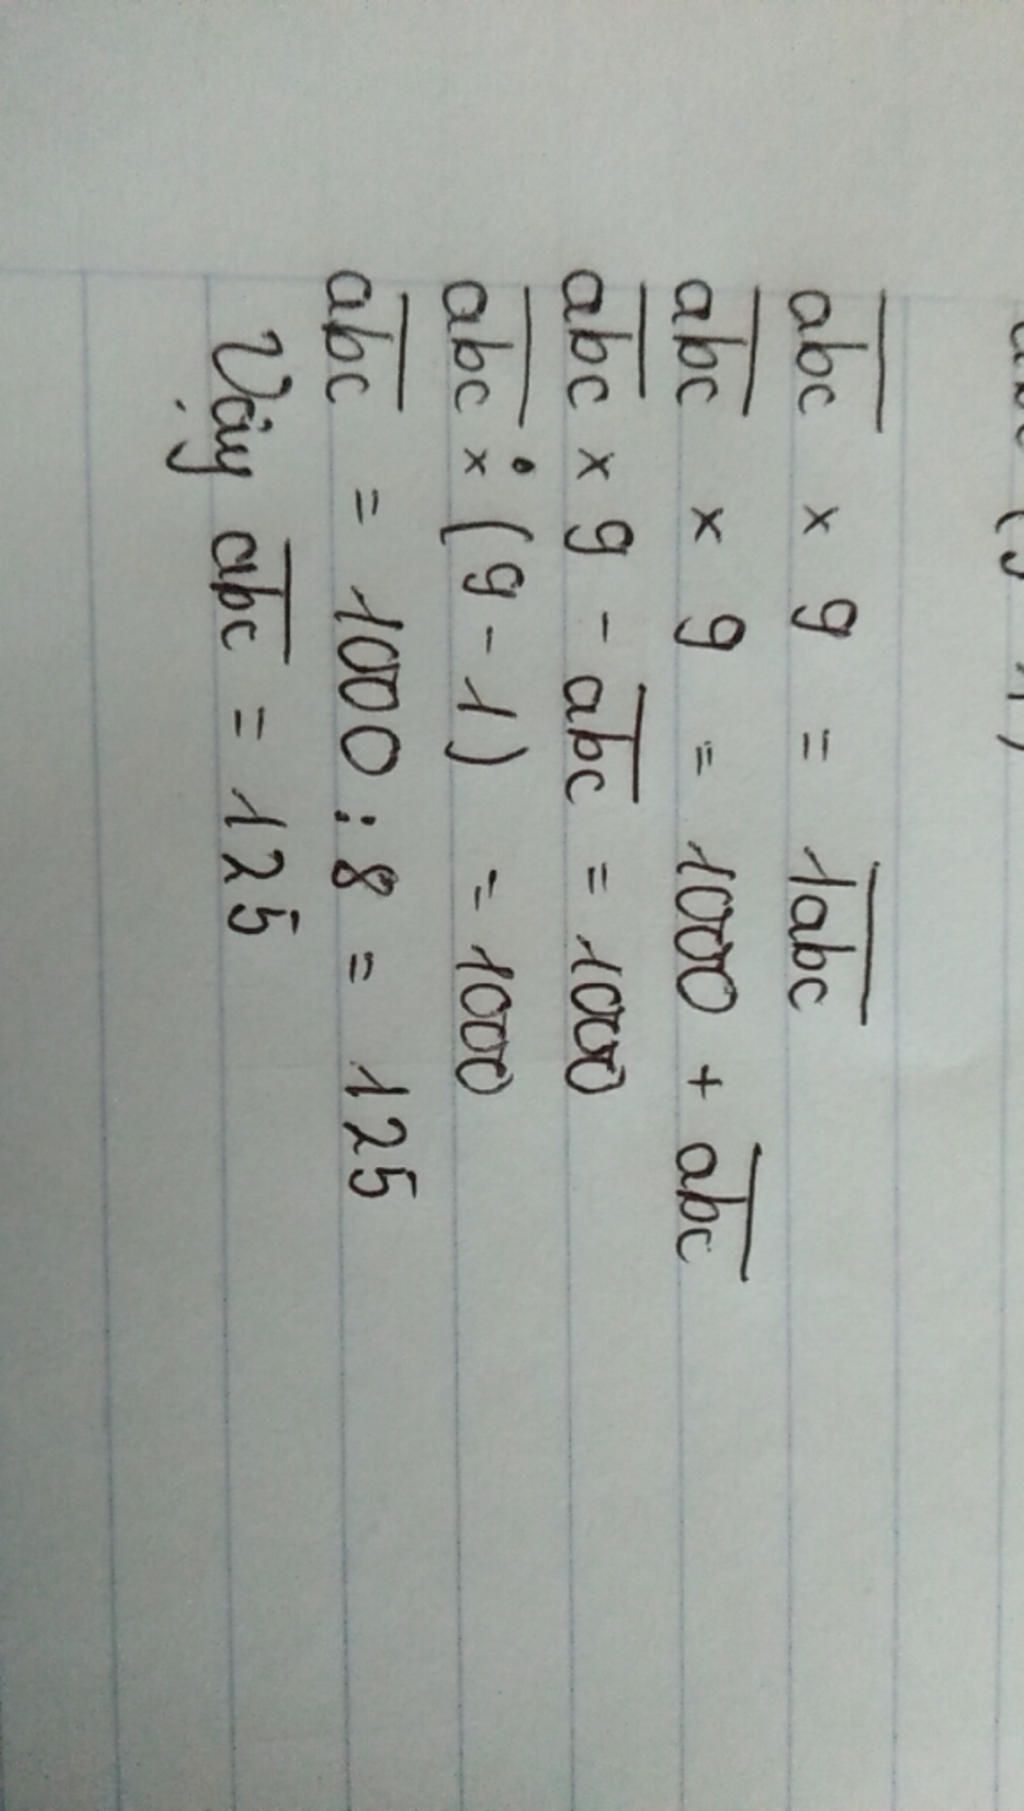 abc × 9 = 1abc
abc × 9 = 1000 + abc
abc × 9 - abc = 1000
abc × (9 - 1) = 1000
abc = 1000 : 8 = 125
Vậy abc = 125